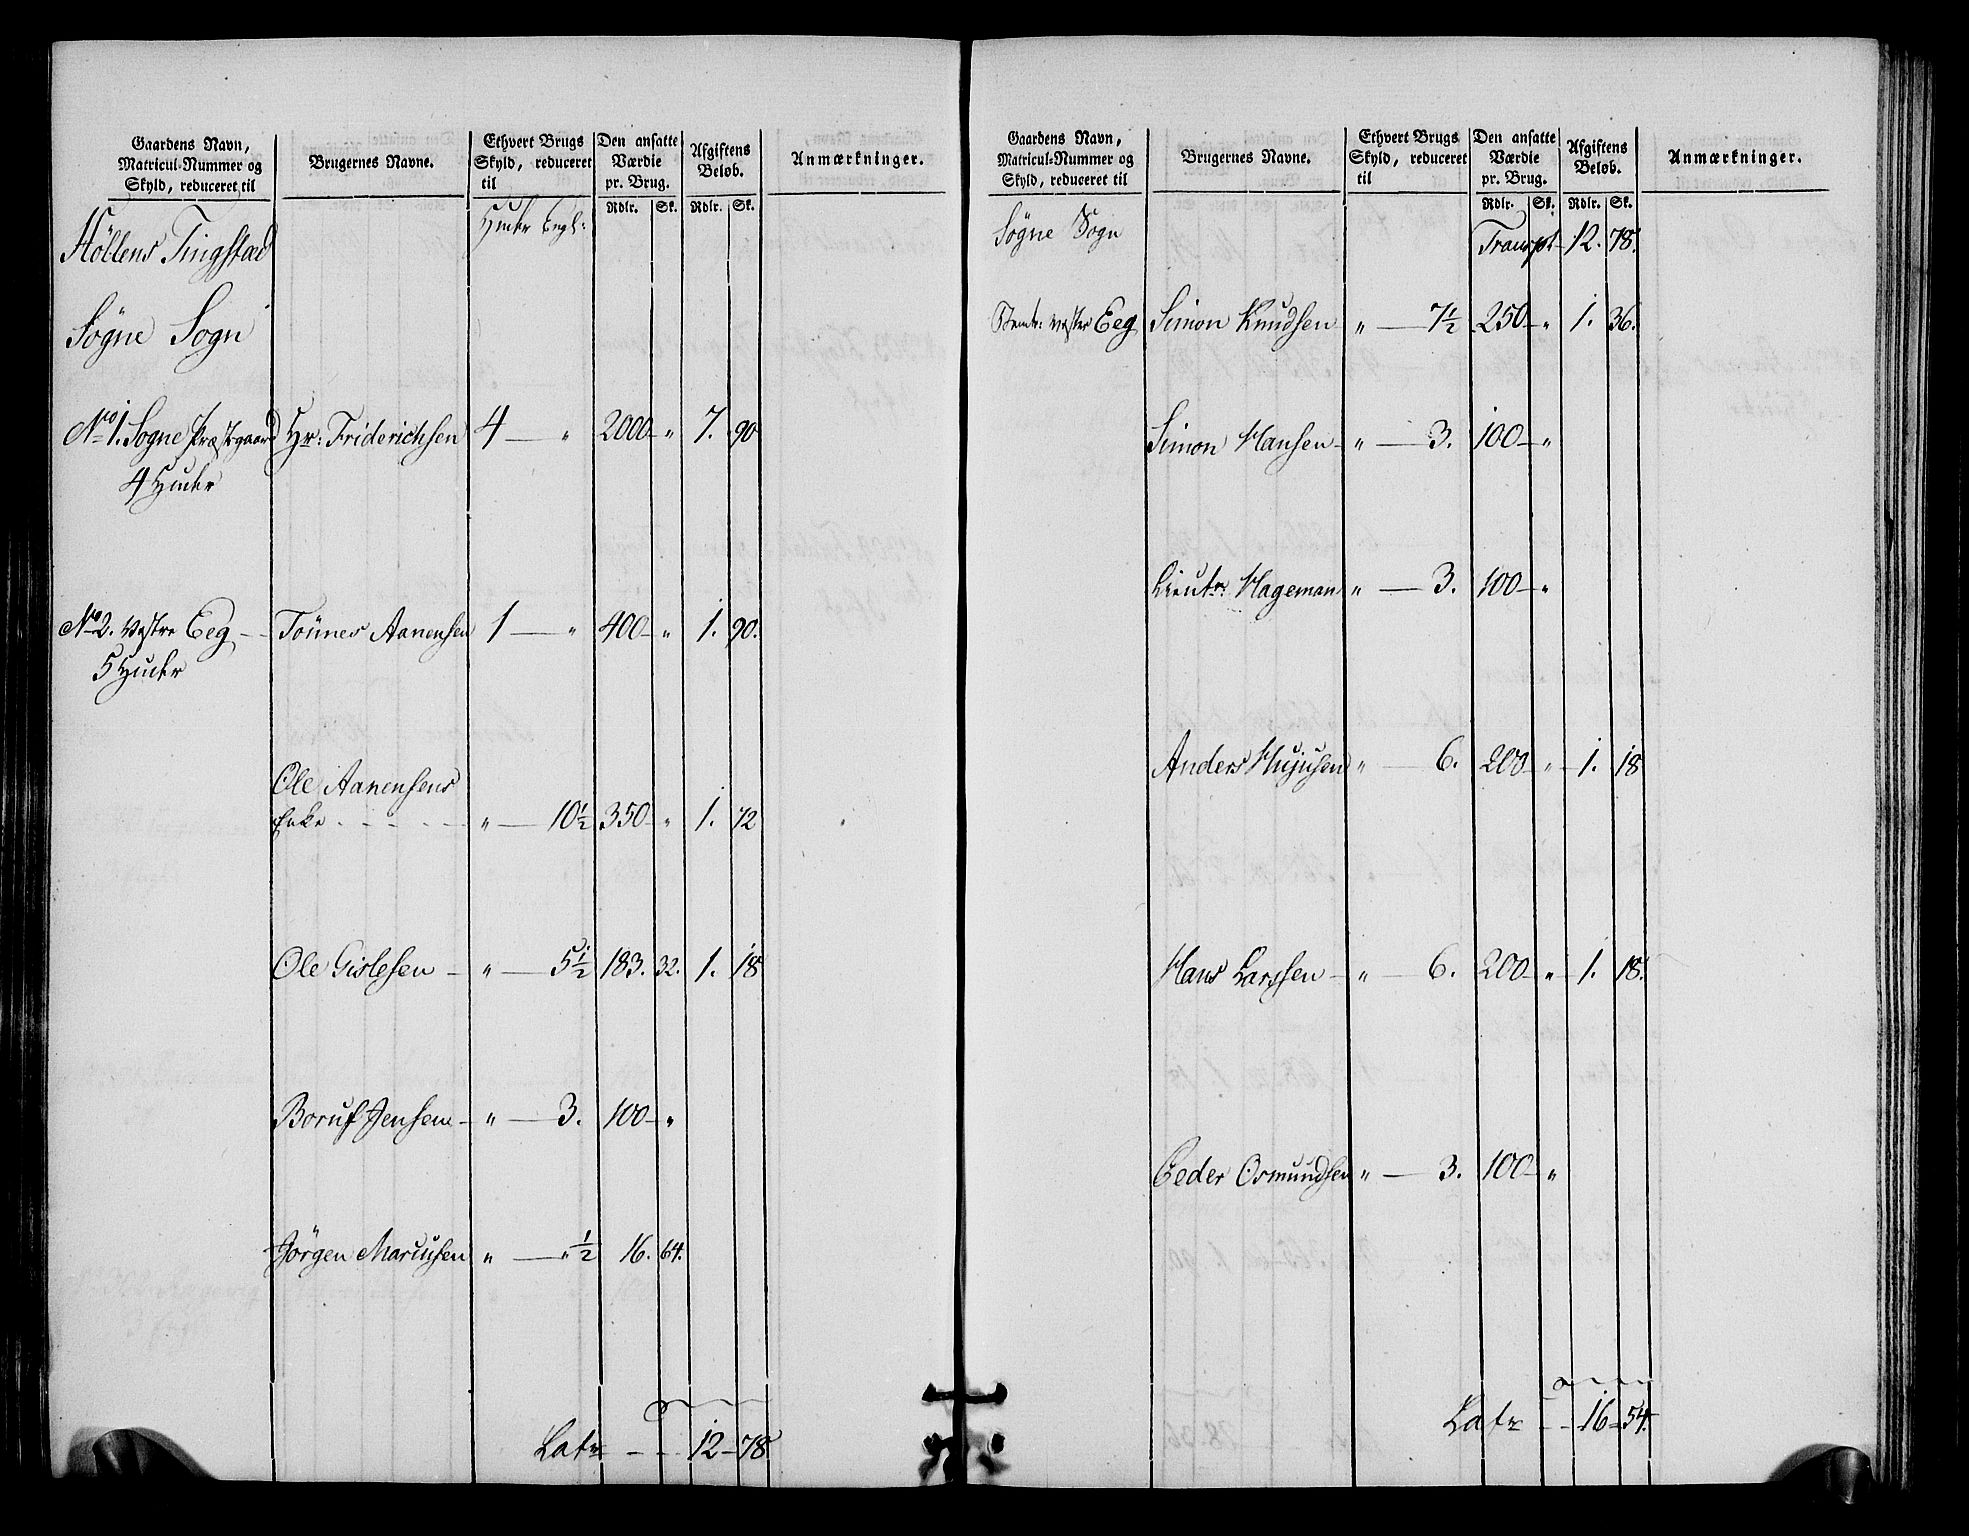 Gaardens Navn, Matricul-Nummer og Skyld, reduceret til
Brugernes Navne.
Ethvert Brugs Skyld, reduceret til
Den ansatte Værdie pr. Brug.
Afgiftens Beløb.
Anmærkninger.
Rdlr. Sk. Rdlr. Sk.
Huder Engl:
Höllens Tingstad
Søgne Sogn
No 1. Sogne Præstgaard Hr: Friderichsen 4 — " 2000 — " 7. 90
4 Huder
No 2. Vestre Eeg - - Tönnes Aanensen 1 — " 400 — " 1. 90.
5 Huder
Ole Aanensens
Enke - - - - - " — 10½ 350 — " 1. 72
Ole Gislesen — " — 5½ 183. 32. 1. 18
Boruf Jensen — " — 3. 100 — "
Jörgen Marcusen " — " ½ 16. 64.
Latr - - 12 — 78
Gaardens Navn, Matricul-Nummer og Skyld, reduceret til
Brugernes Navne.
Ethvert Brugs Skyld, reduceret til
Den ansatte Værdie pr. Brug.
Afgiftens Beløb.
Anmærkninger.
Rdlr. Sk. Rdlr. Sk.
Søgne Sogn Transpt 12. 78.
Vester Eeg Simon Knudsen " — 7½ 250 — " 1. 36.
Simon Hansen — " — 3. 100 — "
Lieutn: Hageman " — 3. 100 — "
Anders Hujusen " — 6. 200 — " 1. 18
Hans Larssen — " — 6. 200 — " 1. 18.
Peder Osmundsen " — 3. 100 — "
Latr - - 16 — 54.